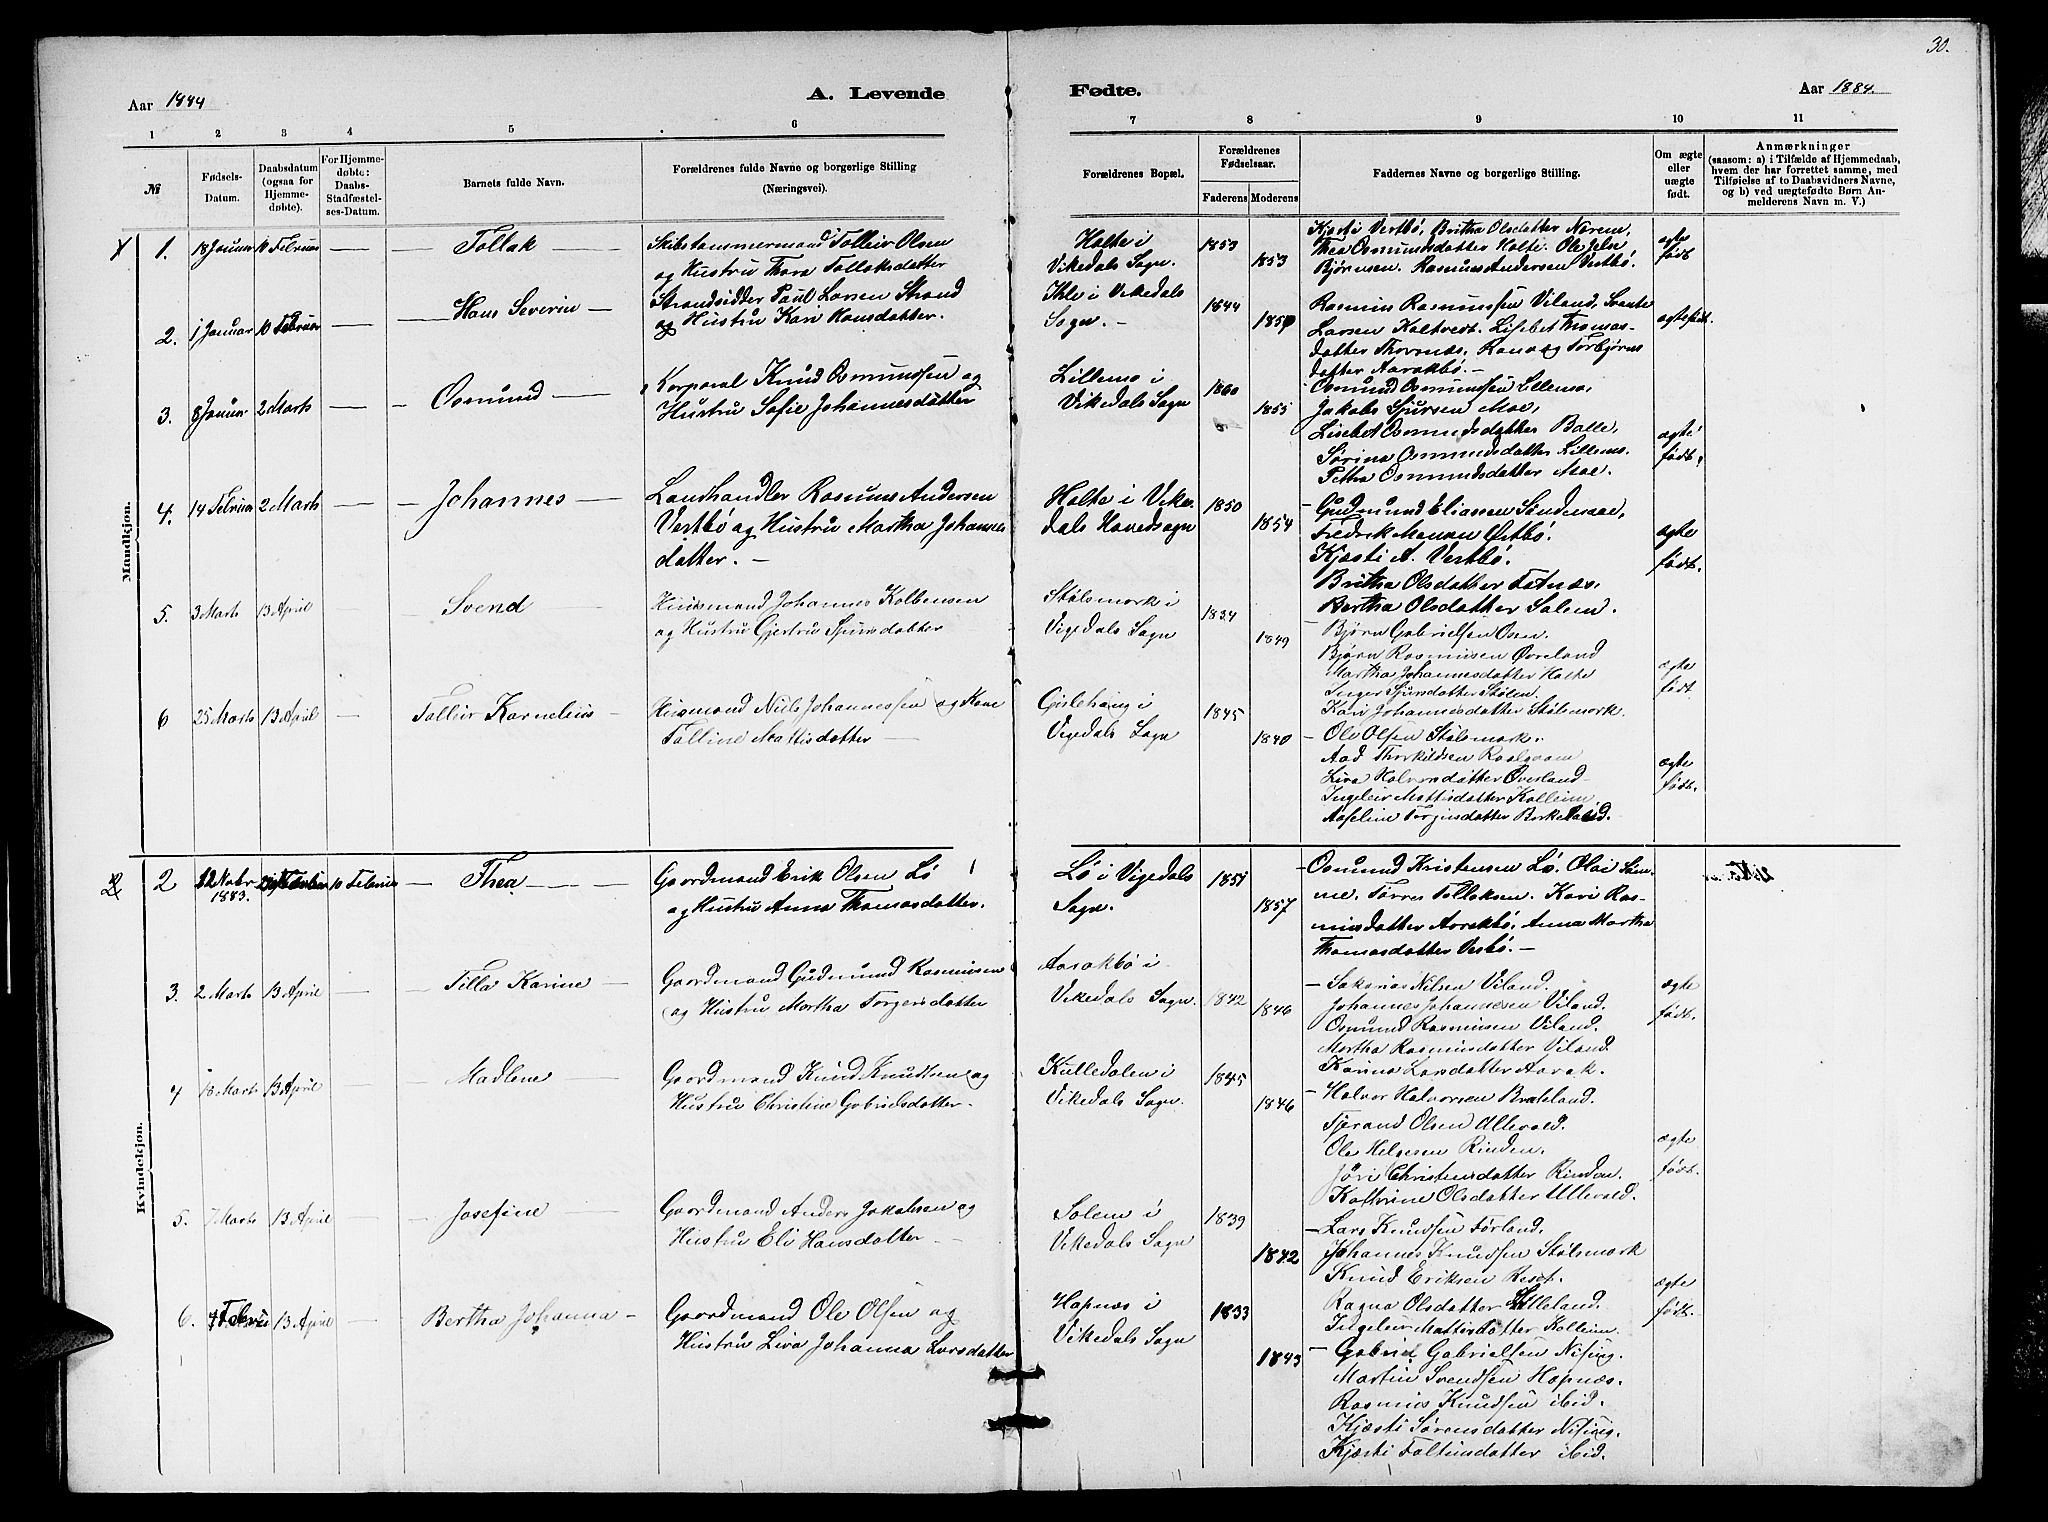 30.
Aar 1884
A. Levende
Fødte.
Aar 1884.
1 2 3 4 5 6 7 8 9 10 11
№
Fødsels-
Datum.
Daabsdatum
(ogsaa for
Hjemme-
døbte).
For Hjemme-
døbte:
Daabs-
Stadfæstel-
ses-Datum.
Barnets fulde Navn.
Forældrenes fulde Navne og borgerlige Stilling
(Næringsvei).
Forældrenes Bopæl.
Forældrenes
Fødselsaar.
Faderens Moderens
Faddernes Navne og borgerlige Stilling.
Om ægte
eller
uægte
født.
Anmærkninger
(saasom: a) i Tilfælde af Hjemmedaab,
hvem der har forrettet samme, med
Tilføielse af to Daabsvidners Navne,
og b) ved uægtefødte Børn An-
melderens Navn m. V.)
Mandkjøn.
1. 18 Januar 10 Februar — Tollak
Skibstømmermand Tolleir Olsen
og Hustru Thora Tollaksdatter
Holte i
Vikedals Sogn.
1853
1853
Kjæsti Vestbø, Britha Olsdatter Nørem,
Thea Osmundsdatter Holte. Ole
Bjørnsen. Rasmus Andersen Vestbø.
ægte
født
2. 1 Januar 10 Februar — Hans Severin —
Strandsidder Paul Larsen Strand
og Hustru Kari Hansdatter.
Ihle i Vikedals
Sogn. —
1844
1850
Rasmus Rasmussen Viland, Svante
Larsen Holtvedt. Lisebet Thomas-
datter Thornæs. Rana og Torbjørns
datter Aarakbø. —
ægtefødt.
3. 8 Januar 2 Marts — Osmund —
Korporal Knud Osmundsen og
Hustru Sofie Johannesdatter
Lillemo i
Vikedals Sogn
1860
1855
Osmund Osmundsen Lillemo,
Jakob Spursen Moe,
Lisebet Osmundsdatter Balle,
Sørina Osmundsdatter Lillemo.
Petra Osmundsdatter Moe.
ægte
født.
4. 14 Februar 2 Marts — Johannes —
Landhandler Rasmus Andersen
Vestbø og Hustru Martha Johannes
datter. —
Holte i Vike-
dals Hovedsogn
1850
1854
Gudmund Eliassen Søndenaae,
Fredrik Monsen Østbø.
Kjæsti A. Vestbø.
Britha Olsdatter Fatnæs.
Bertha Olsdatter Solem.
ægte
født.
5. 3 Marts 13 April — Svend —
Huusmand Johannes Kolbensen
og Hustru Gjertru Spursdatter
Stølsmork i
Vigedals Sogn
1834
1849
Bjørn Gabrielsen Osen.
Bjørn Rasmussen Øvreland
Martha Johannesdatter Holte
Inger Spursdatter Stølen.
Kari Johannesdatter Stølsmork.
ægte
født.
6 25 Marts 13 April — Tolleir Kornelius —
Huusmand Niels Johannessen og Kone
Talline Mattisdatter —
Gislehaug i
Vigedals Sogn
1845
1840
Ole Olsen Stølsmork.
Aad Thorkildsen
Liva Halvorsdatter Øverland
Ingeleir Mattisdatter Kolleim
Aaseline Torginsdatter Birkeland.
ægte
født.
Kvindekjøn.
2 12 Nobr 1883. 10 Februar — Thea —
Gaardmand Erik Olsen Lø
og Hustru Anna Thomasdatter.
Lø i Vigedals
Sogn.
1851
1857
Osmund Kristensen Lø. Olai Sam-
me. Torres Tollaksen. Kari Ras-
musdatter Aarakbø, Anna Martha
Thomasdatter Vesbø. —
3. 2 Marts 13 April — Tilla Karine —
Gaardmand Gudmund Rasmussen
og Hustru Martha Torgersdatter
Aarakbø i
Vikedals Sogn.
1842
1846
Sakarias Nilsen Viland.
Johannes Johannesen Viland.
Osmund Rasmussen Viland.
Martha Rasmusdatter Viland.
Karina Larsdatter Aarak.
ægte
født.
4 18 Marts 13 April — Madlene —
Gaardmand Knud Knudsen og
Hustru Christine Gabrielsdatter.
Kulledalen i
Vikedals Sogn.
1845
1846
Halvor Halvorsen Brakland.
Tjerand Olsen Ullevold.
Ole Helgesen Rinden.
Jøri Christensdatter Rinden.
Kathrine Olsdatter Ullevold.
ægte
født.
5. 7 Marts 13 April — Josefine —
Gaardmand Anders Jakobsen og
Hustru Eli Hansdatter —
Solem i
Vikedals Sogn
1839
1842
Lars Knudsen Førland.
Johannes Knudsen Stølsmork
Knud Eriksen
Ragna Olsdatter Lilleland.
Ingeleir Mattisdatter Kolleim.
ægte
født.
6. 7 Februar 13 April Bertha Johanna —
Gaardmand Ole Olsen og
Hustru Liva Johanna Larsdatter
Hapnæs i
Vikedals Sogn
1833
1843
Gabriel Gabrielsen Nising.
Martin Svendsen Hapnæs.
Rasmus Knudsen ibid.
Kjæsti Sørensdatter Nising.
Kjæsti Foltinsdatter ibid.